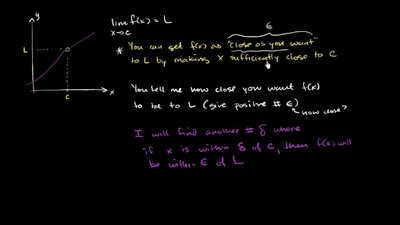 y
lim f(x) = L
x→c
ε
* You can get f(x) as "close as you want"
to L by making x sufficiently close to C
L
c
x
You tell me how close you want f(x)
to be to L (give positive # ε)
how close?
I will find another # δ where
if x is within δ of c, then f(x) will
be within ε of L